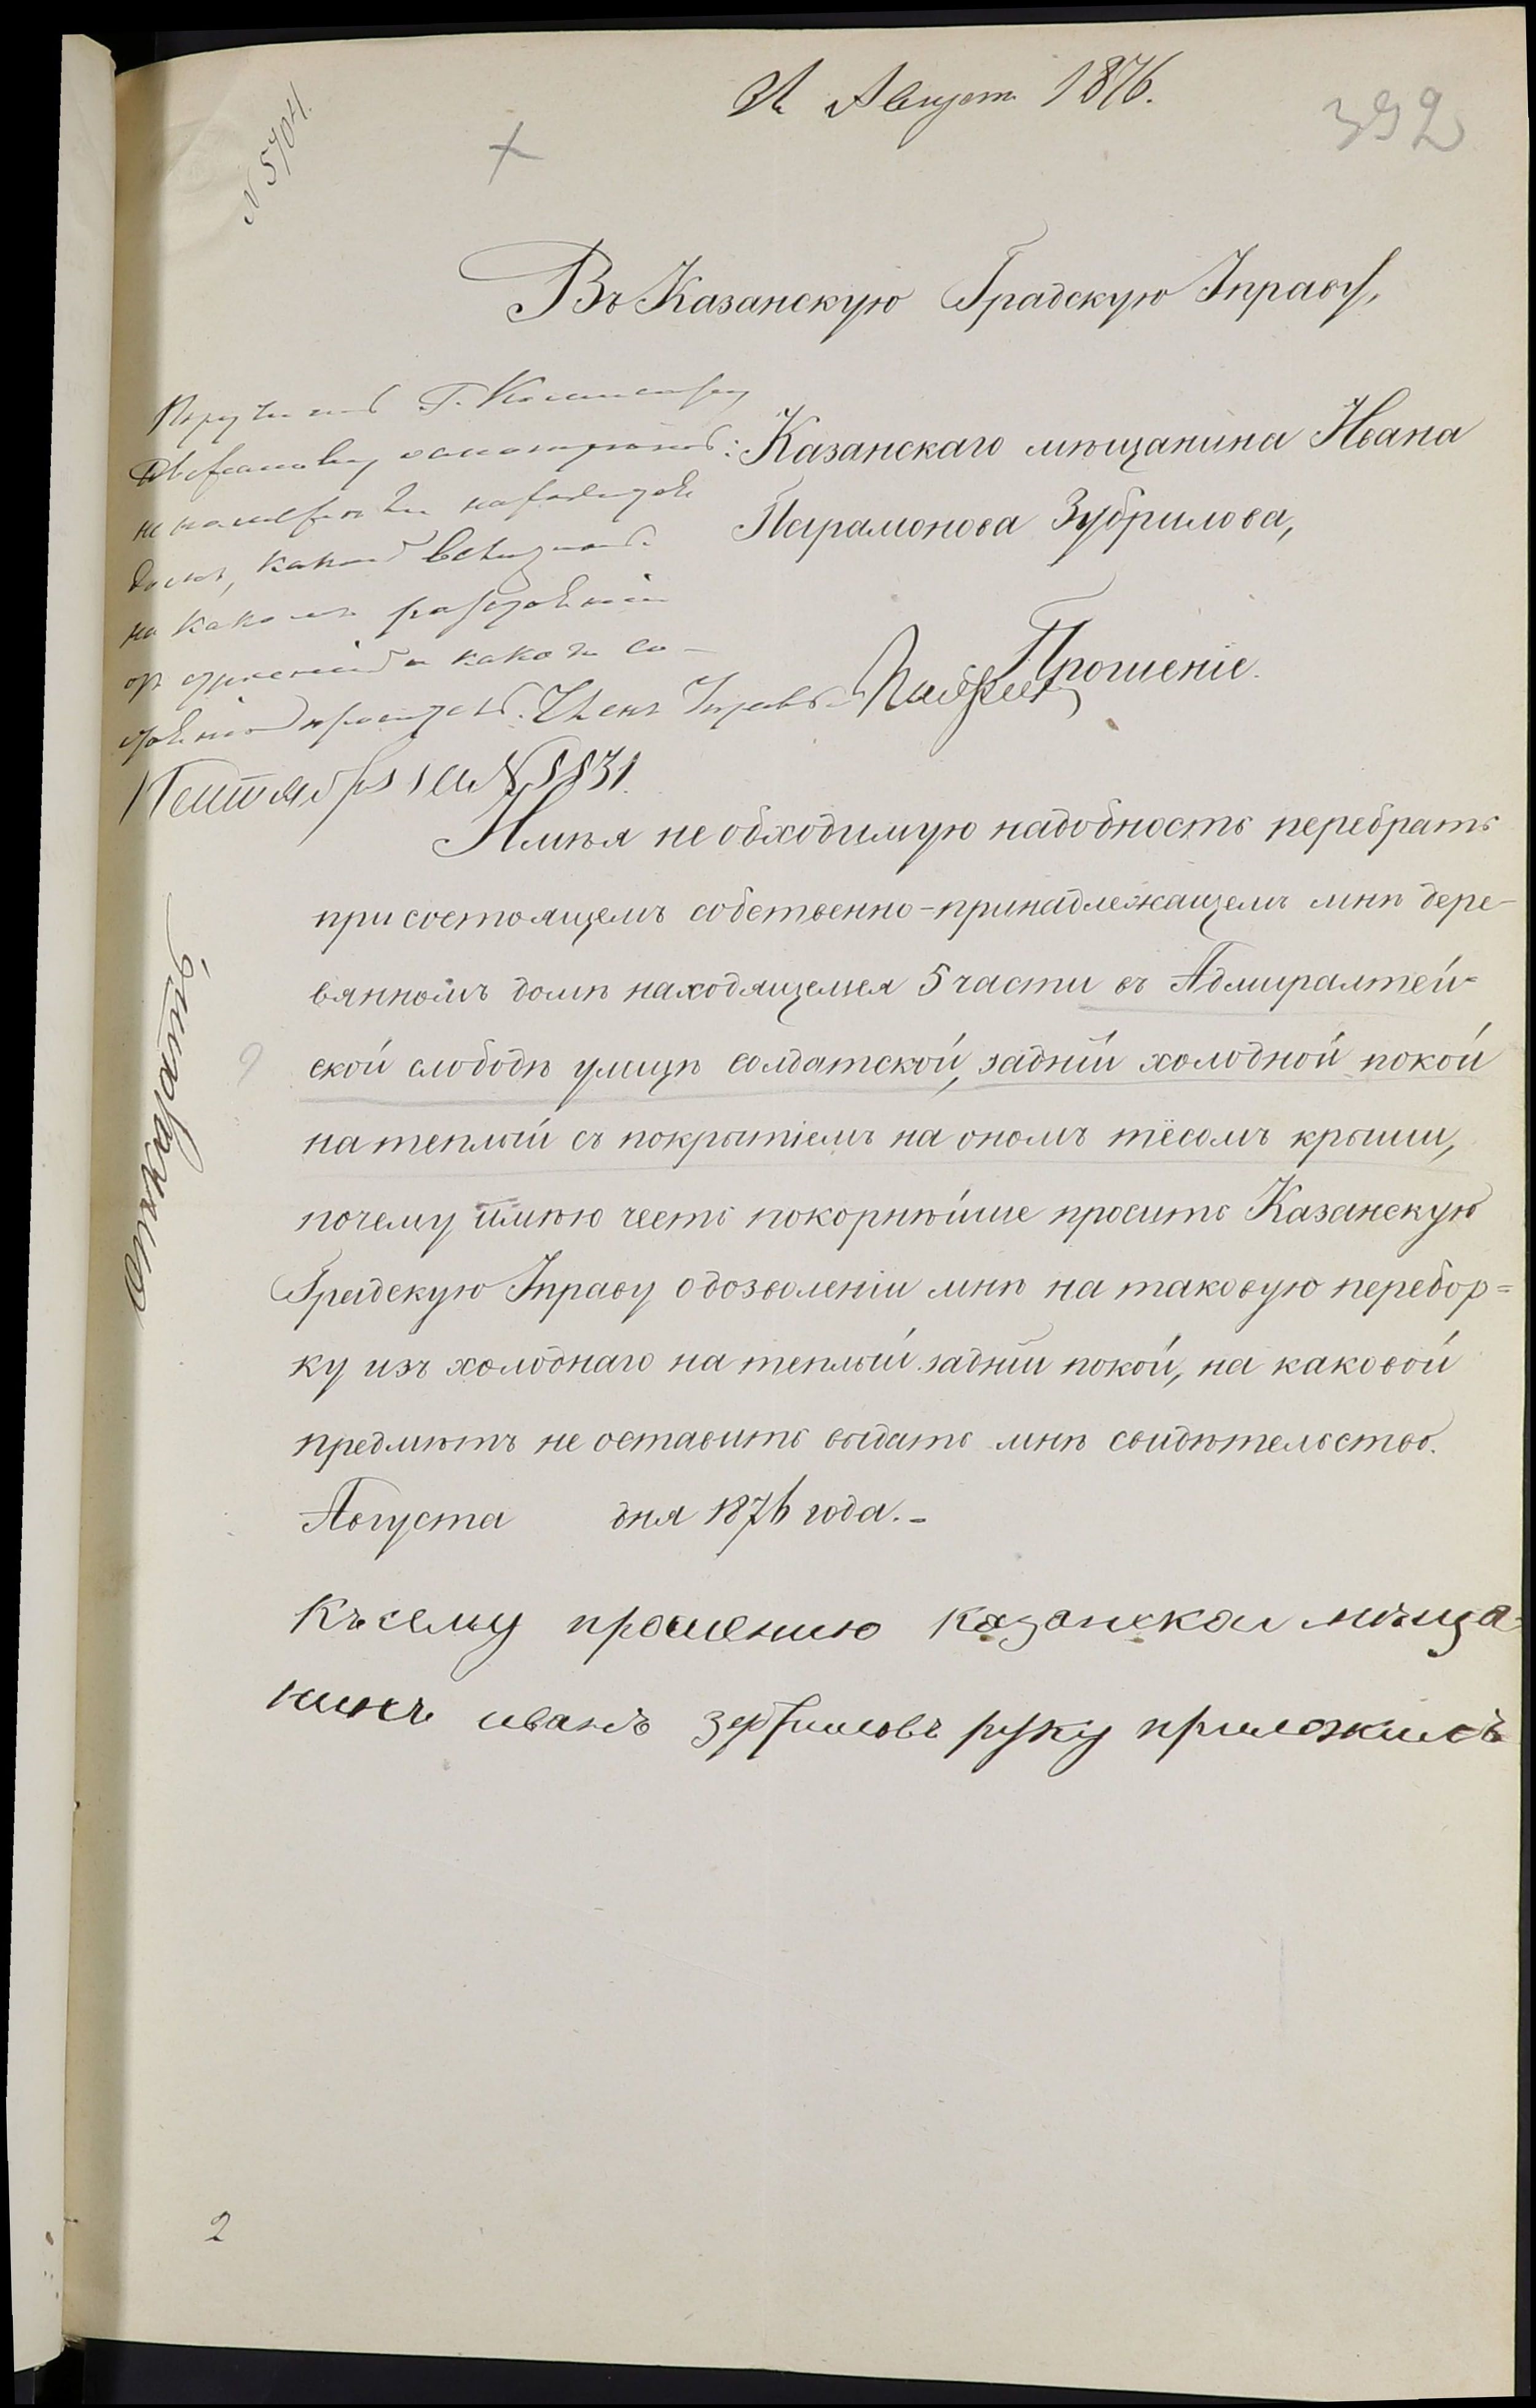 31 Август 1876.
392
N 5704.
Въ Казанскую Градскую Управу,
Поручить Г. Коммисару
осмотреть:
не на
домъ, какой
на какомъ разстояніи
отъ и какого со-
стоянія Членъ Управы
1 Сентября за N 5831.
Казанскаго мѣщанина Ивана
Парамонова Зубрилова,
Прошеніе.
Имѣя не обходимую надобность перебрать
при состоящемъ собственно-принадлежащемъ мнѣ дере-
вянномъ домѣ находящемся 5 части въ Адмиралтей-
ской слободѣ улицѣ солдатской, задній холодной покой
на теплый съ покрытіемъ на ономъ тёсомъ крыши,
почему имѣю честь покорнѣйше просить Казанскую
Градскую Управу о дозволеніи мнѣ на таковую перебор-
ку изъ холоднаго на теплый задній покой, на каковой
предмѣтъ не оставить выдать мнѣ свидѣтельство.
Августа дня 1876 года.-
Отказать
Къ сему прошению казанскои мѣща-
нинъ иванъ зубриловъ руку приложилъ
2